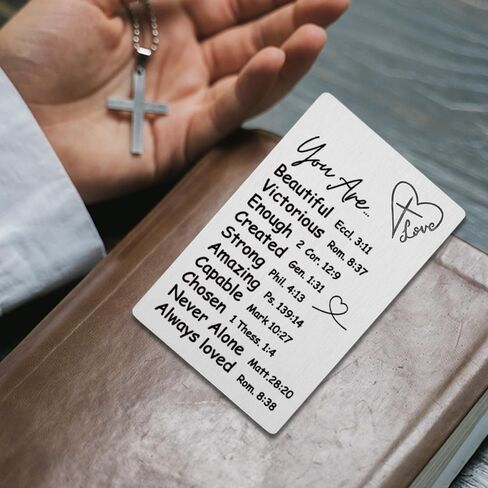 You Are...
Beautiful Eccl. 3:11
Victorious Rom. 8:37
Enough 2 Cor. 12:9
Created Gen. 1:31
Strong Phil. 4:13
Amazing Ps. 139:14
Capable Mark 10:27
Chosen 1 Thess. 1:4
Never Alone Matt.28:20
Always loved Rom. 8:38
Love